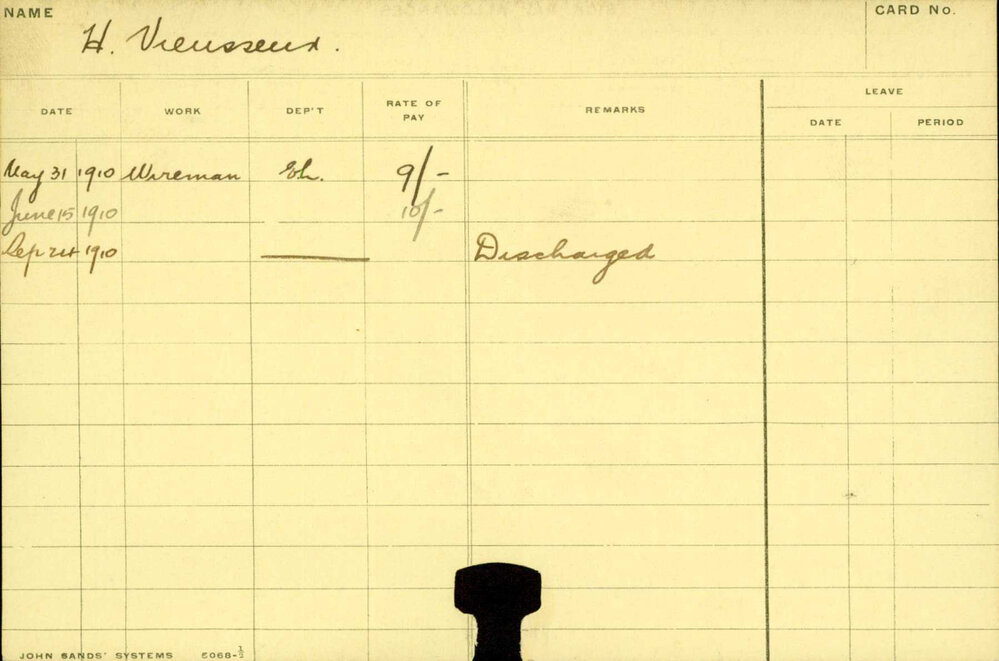 NAME
CARD NO.
H. Vieusseux.
DATE WORK DEP'T RATE OF PAY REMARKS LEAVE
DATE PERIOD
May 31 1910 Wireman El. 9/-
June 15 1910 10/-
Sep 24 1910 Discharged
JOHN SANDS' SYSTEMS 5068-½